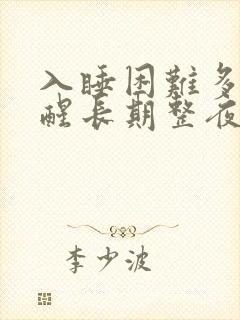 入睡困難多
醒長期整夜
李少波